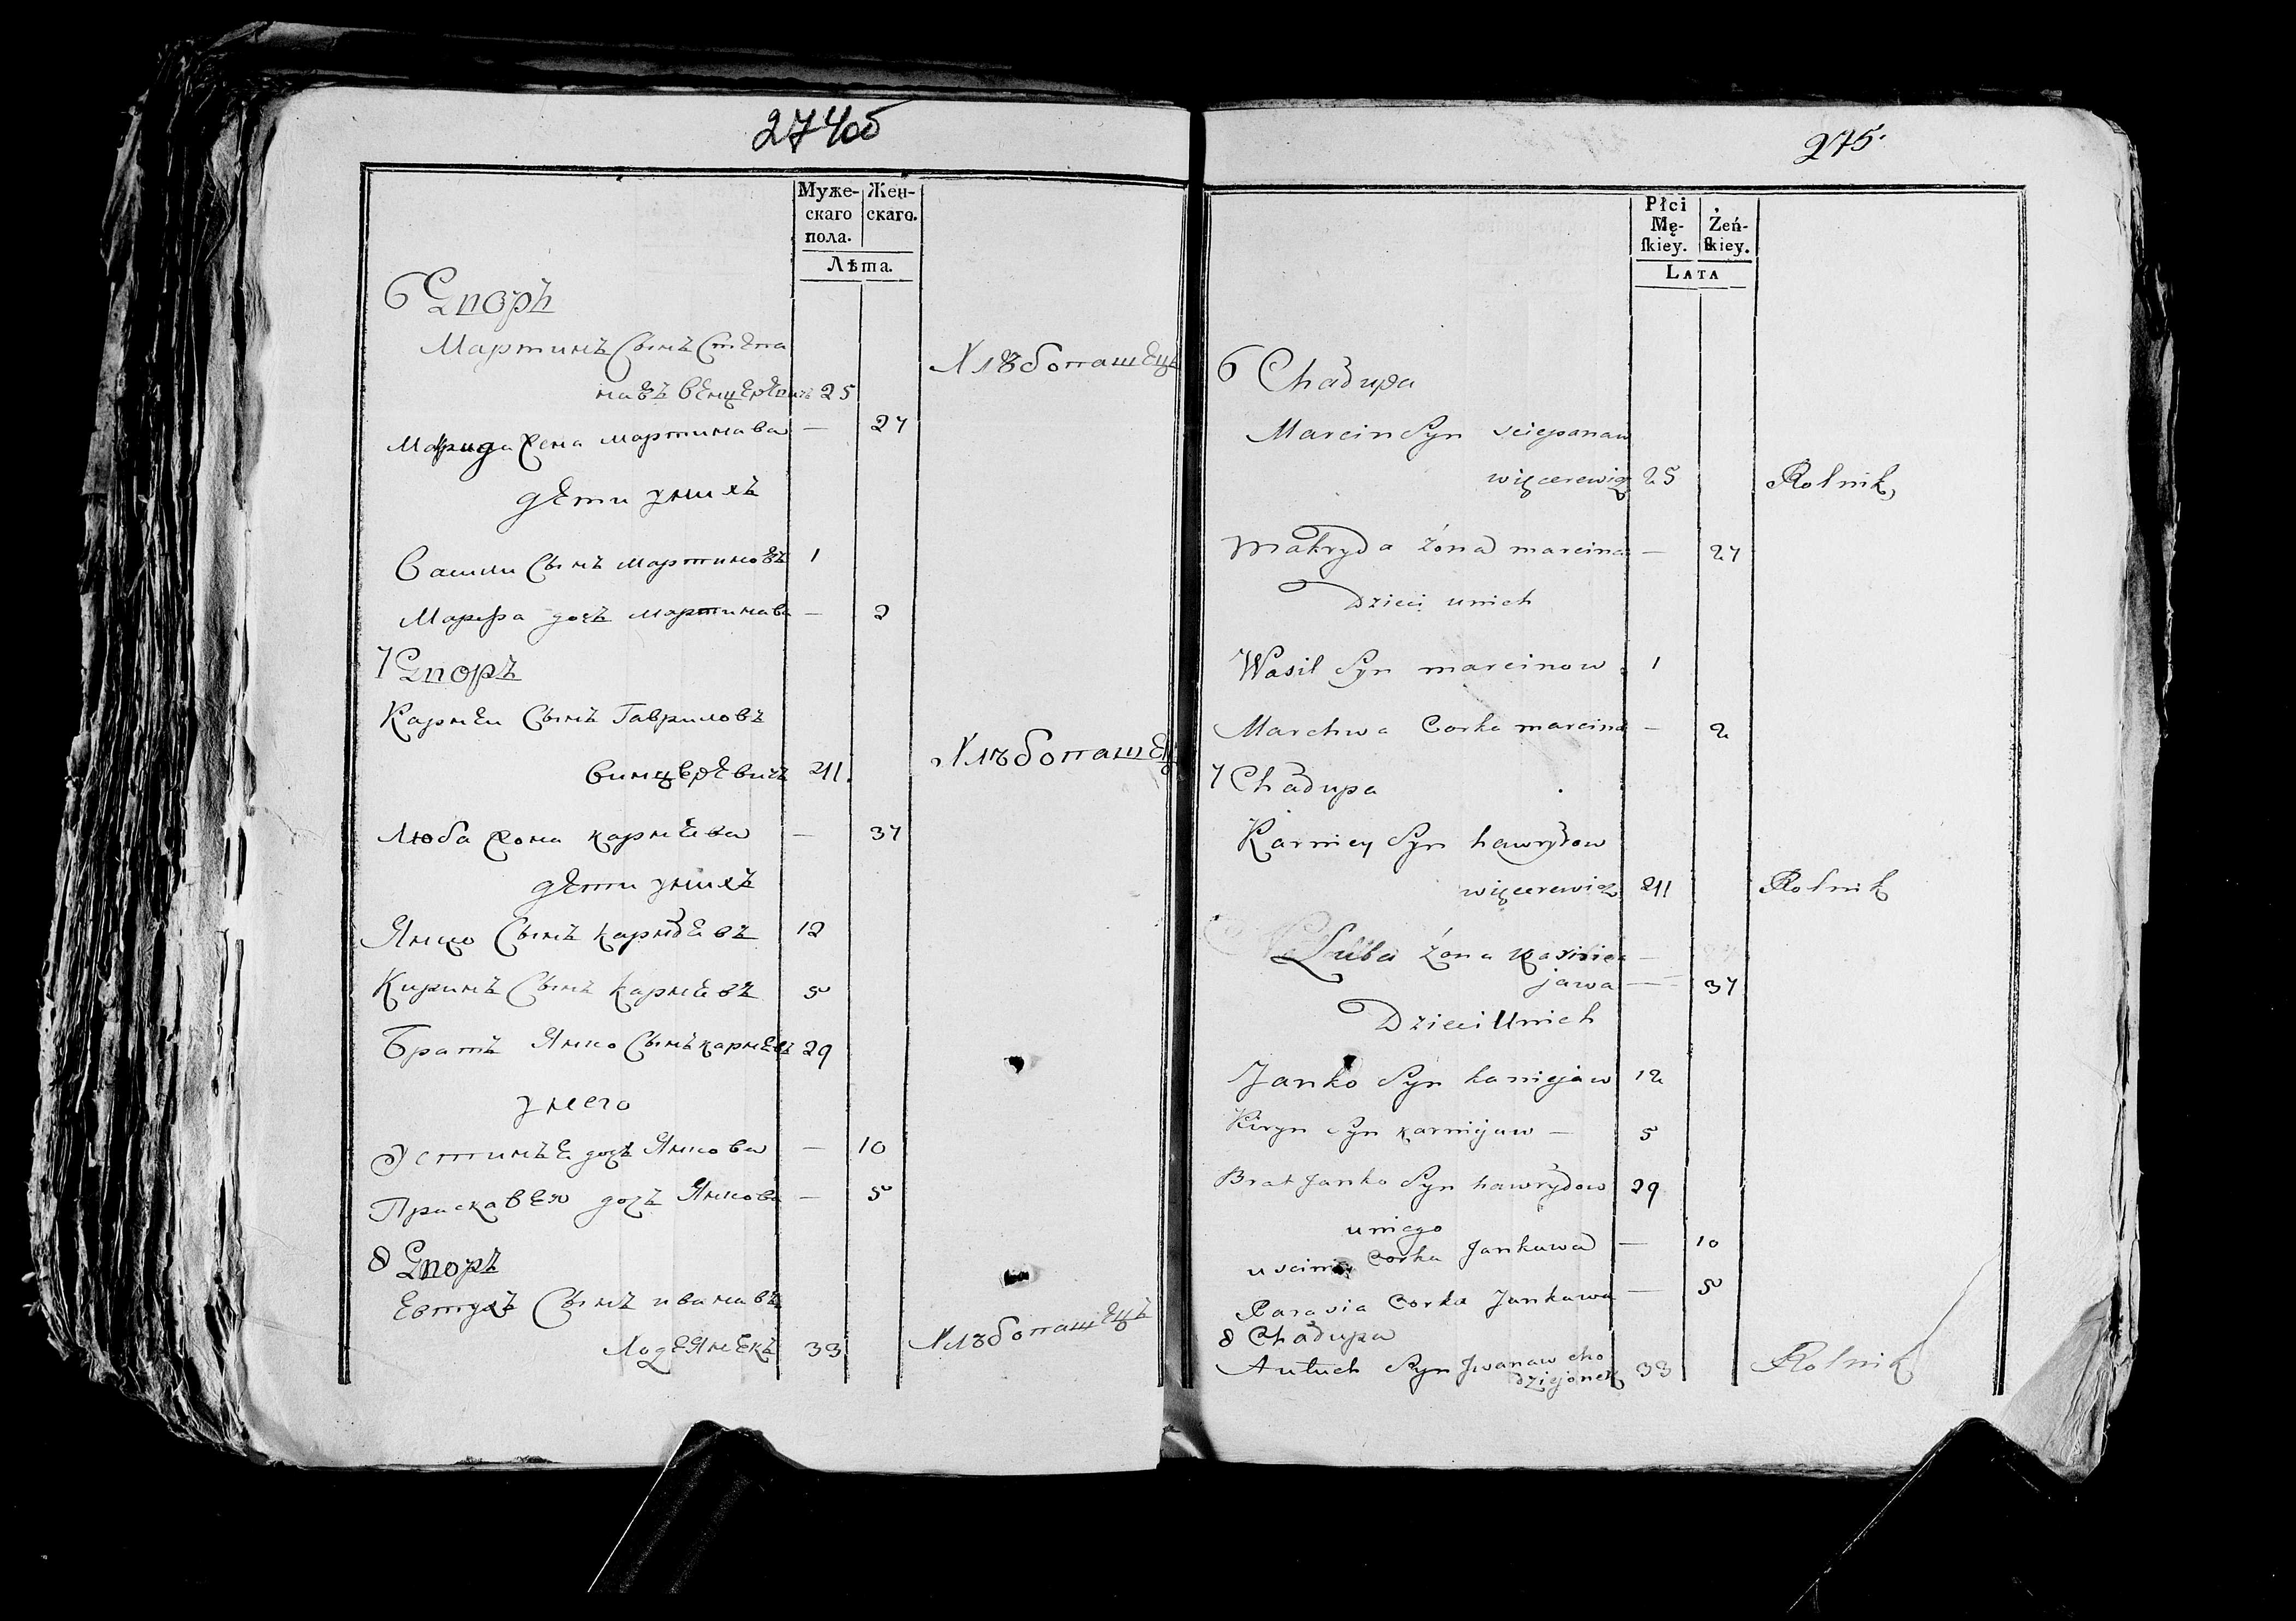 274об
Муже-
скаго
пола.
Жен-
скаго.
Лѣта.
6 Двор
Мартинъ Сынъ Степа
навъ Венцеревичъ 25
Хлѣбопашецъ
Макрида Жена Мартинава — 27
дети унихъ
Васили Сынъ Мартиновъ 1
Марфа дочь Мартинава — 2
7 Дворъ
Карней Сынъ Гавриловъ
Винцеревичъ 411
Хлѣбопашец
Люба Жона карнеева — 37
дети унихъ
Янко Сынъ карнеевъ 12
Киринъ Сынъ карнеевъ 5
Братъ Янко Сынъ карнеевъ 29
унего
Устинье дочь Янкова — 10
Прискавея дочь Янкова — 5
8 Дворъ
Евтухъ Сынъ иванавъ
33
Хлѣбопашецъ
275.
Płci
Mę-
ſkiey.
Żeń-
ſkiey.
LATA
6 Chałupa
Marcin Syn sciepanaw
więcerewicz 25 Rolnik
Makryda żona marcina — 27
Dzieci unich
Wasil Syn marcinow 1
Marchwa Corka marcina — 2
7 Chałupa
Karniey Syn hawryłow
więcerewicz 411 Rolnik
Luba żona Karnie
jawa — 37
Dzieci Unich
Janko Syn karniejaw 12
Kiryn Syn karniejaw — 5
Brat Janko Syn hawryłow 29
uniego
Corka Jankawa — 10
Parasia Corka Jankawa — 5
8 Chałupa
Autuch Syn Jwanaw cho
dziejonek 33 Rolnik